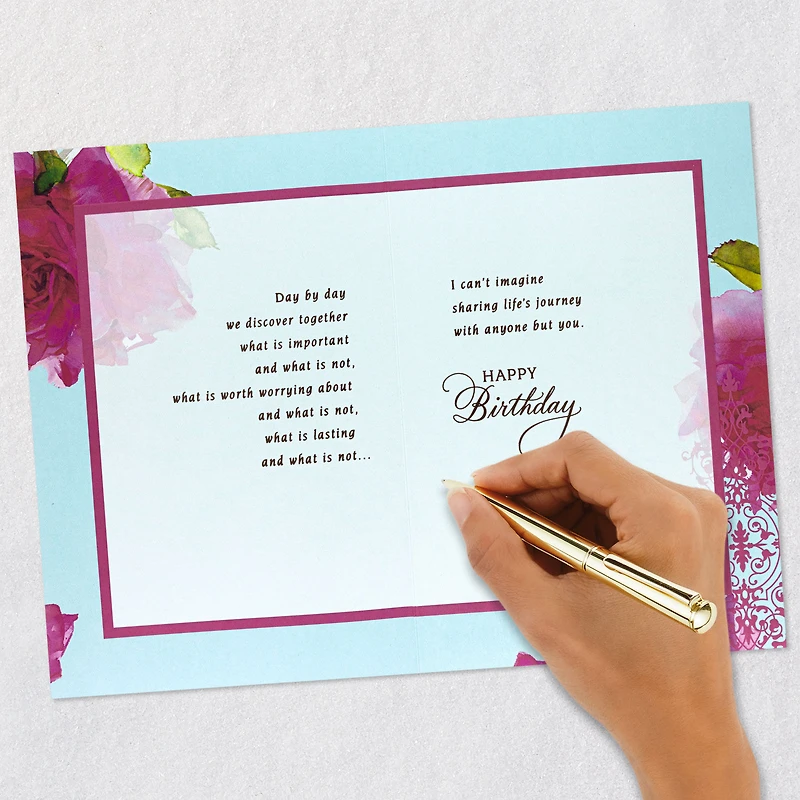 Day by day
we discover together
what is important
and what is not,
what is worth worrying about
and what is not,
what is lasting
and what is not...
I can't imagine
sharing life's journey
with anyone but you.
HAPPY
Birthday